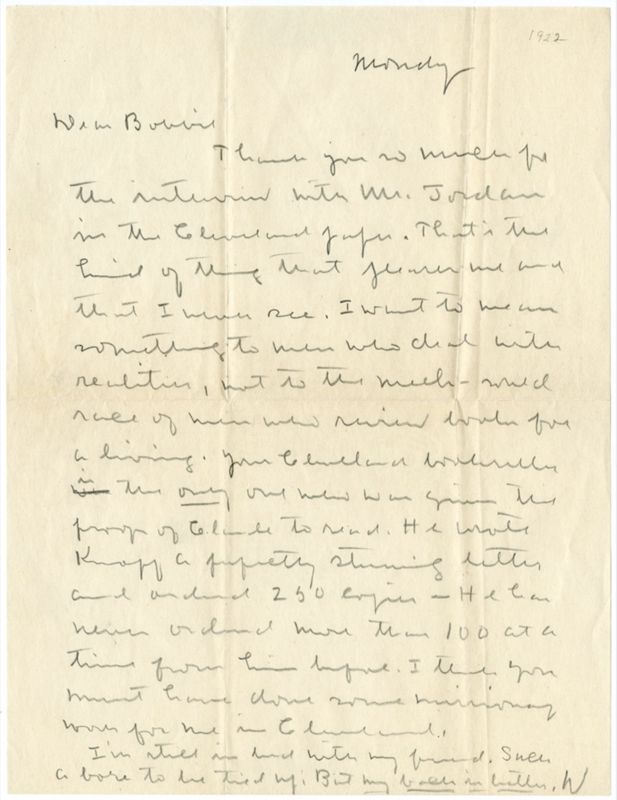 1922
Monday
Dear Bobbie
Thank you so much for
the interview with Mr. Jordan
in the Cleveland paper. That's the
kind of thing that pleases me and
that I never see. I want to mean
something to men who deal with
realities, not to the
race of men who review books for
a living. Your Cleveland bookseller
is the only one who was given the
proofs of Claude to read. He wrote
Knopf a pretty stunning letter
and ordered 250 copies - He has
never ordered more than 100 at a
time from him before. I think you
must have done some missionary
work for me in Cleveland.
I'm still in bed with my friend. Such
a bore to be tied up. But my book is better. W